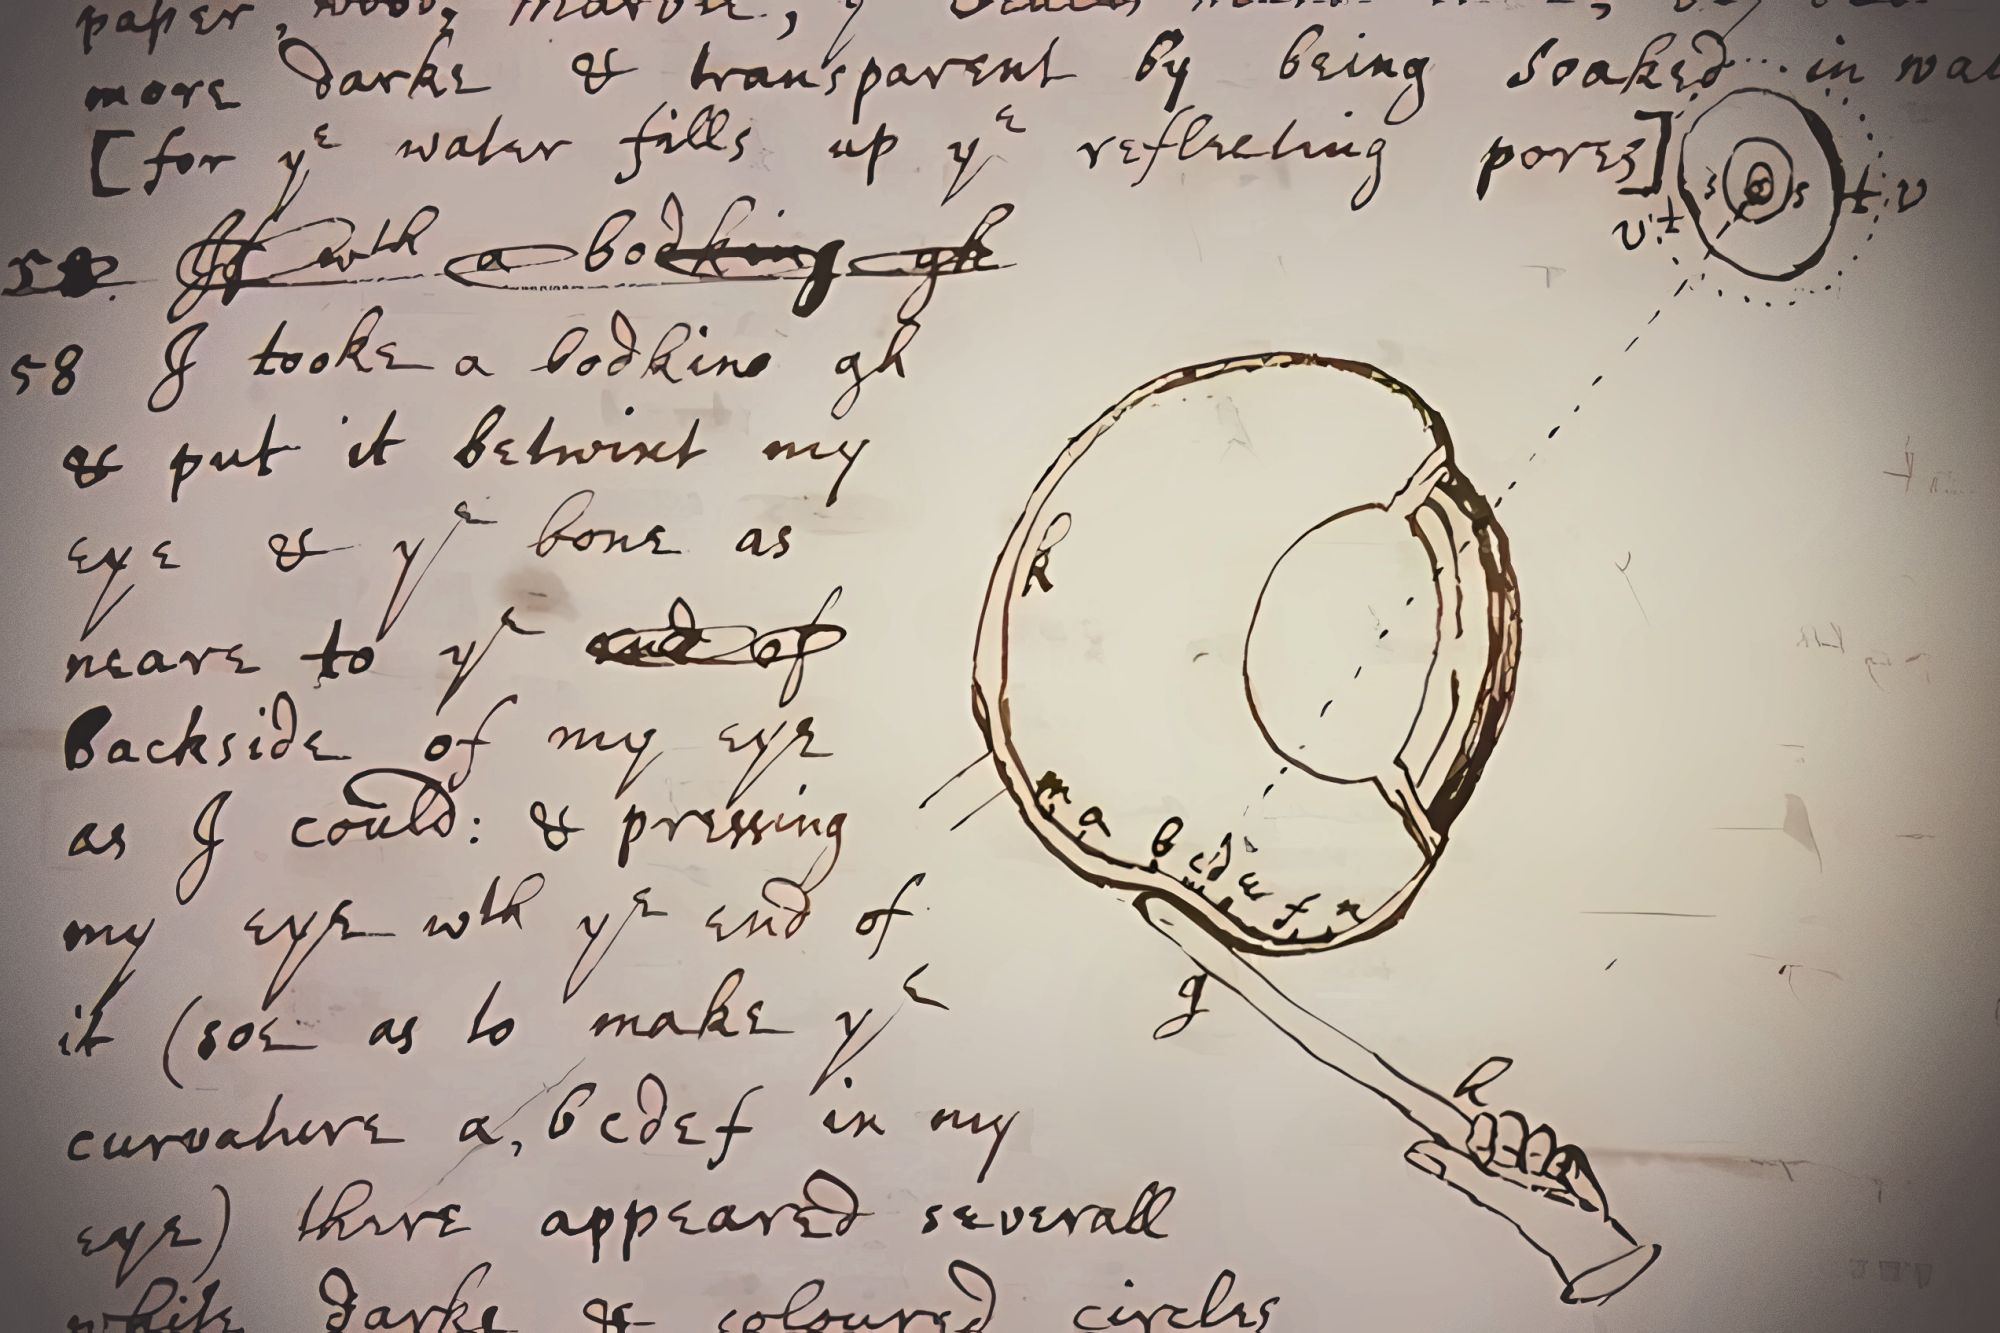 paper, wood, marble, y
more darke & transparent by being soaked in wat
[for yᵉ water fills up yᵉ reflecting pores]
58 If wᵗʰ a bodking gh
58 I tooke a bodkine gh
& put it betwixt my
eye & yᵉ bone as
neare to yᵉ end of
Backside of my eye
as I could: & pressing
my eye wᵗʰ yᵉ end of
it (soe as to make yᵉ
curvature a, bcdef in my
eye) there appeared severall
white darke & coloured circles
s s
v t t v
k
m a b c d e f n
g
h